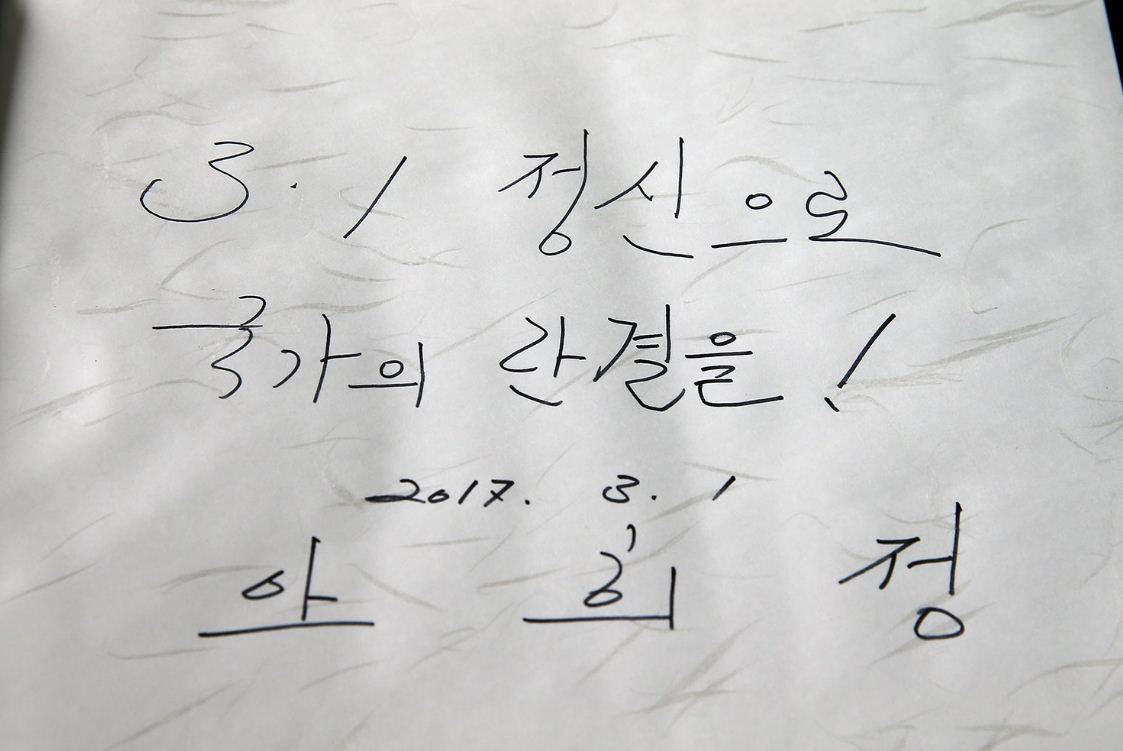 3.1 정신으로
국가의 단결을!
2017. 3. 1
안 희 정